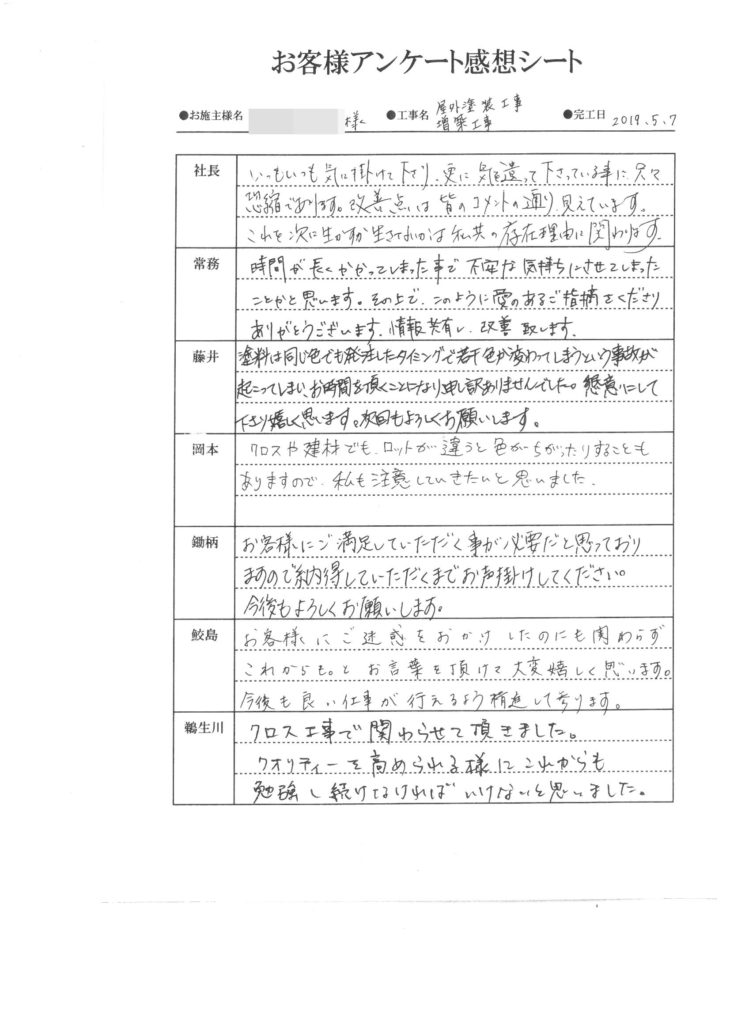 お客様アンケート感想シート
●お施主様名 様 ●工事名 屋外塗装工事 増築工事 ●完工日 2019.5.7
社長 いつもいつも気に掛けて下さり、更に気を遣って下さっている事に、只々
恐縮であります。改善点は皆のコメントの通り、見えています。
これを次に生かすか生さないかは私共の存在理由に関わります。
常務 時間が長くかかってしまった事で不安な気持ちにさせてしまった
ことかと思います。その上で、このように愛のあるご指摘をくださり
ありがとうございます。情報共有し、改善致します。
藤井 塗料は同じ色でも発注したタイミングで若干色が変わってしまうという事故が
起こってしまい、お時間を頂くことになり申し訳ありませんでした。懇意にして
下さり嬉しく思います。次回もよろしくお願いします。
岡本 クロスや建材でも、ロットが違うと色がちがったりすることも
ありますので、私も注意していきたいと思いました。
鋤柄 お客様にご満足していただく事が必要だと思っており
ますので納得していただくまでお声掛けしてください。
今後もよろしくお願いします。
鮫島 お客様にご迷惑をおかけしたのにも関わらず
これからも。とお言葉を頂けて大変嬉しく思います。
今後も良い仕事が行えるよう精進して参ります。
鵜生川 クロス工事で関わらせて頂きました。
クオリティーを高められる様にこれからも
勉強し続けなければいけないと思いました。